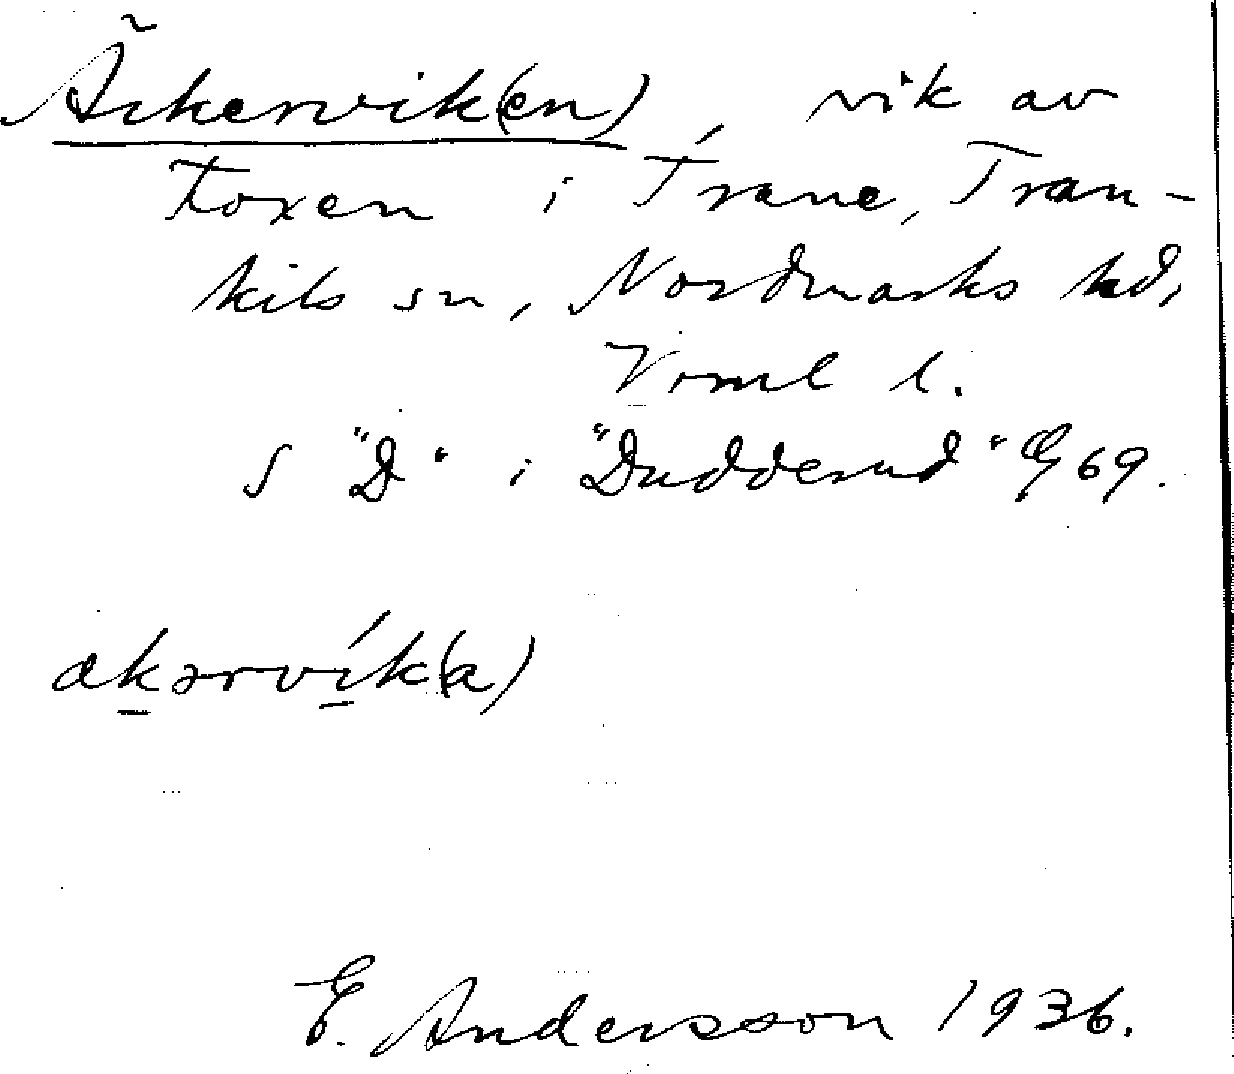 Åkervik(en), vik av
Foxen i Trane, Tran-
kils sn, Nordmarks hd,
Vrml l.
S "D" i "Dudderud" G 69.
akərvík(a)
E. Andersson 1936.